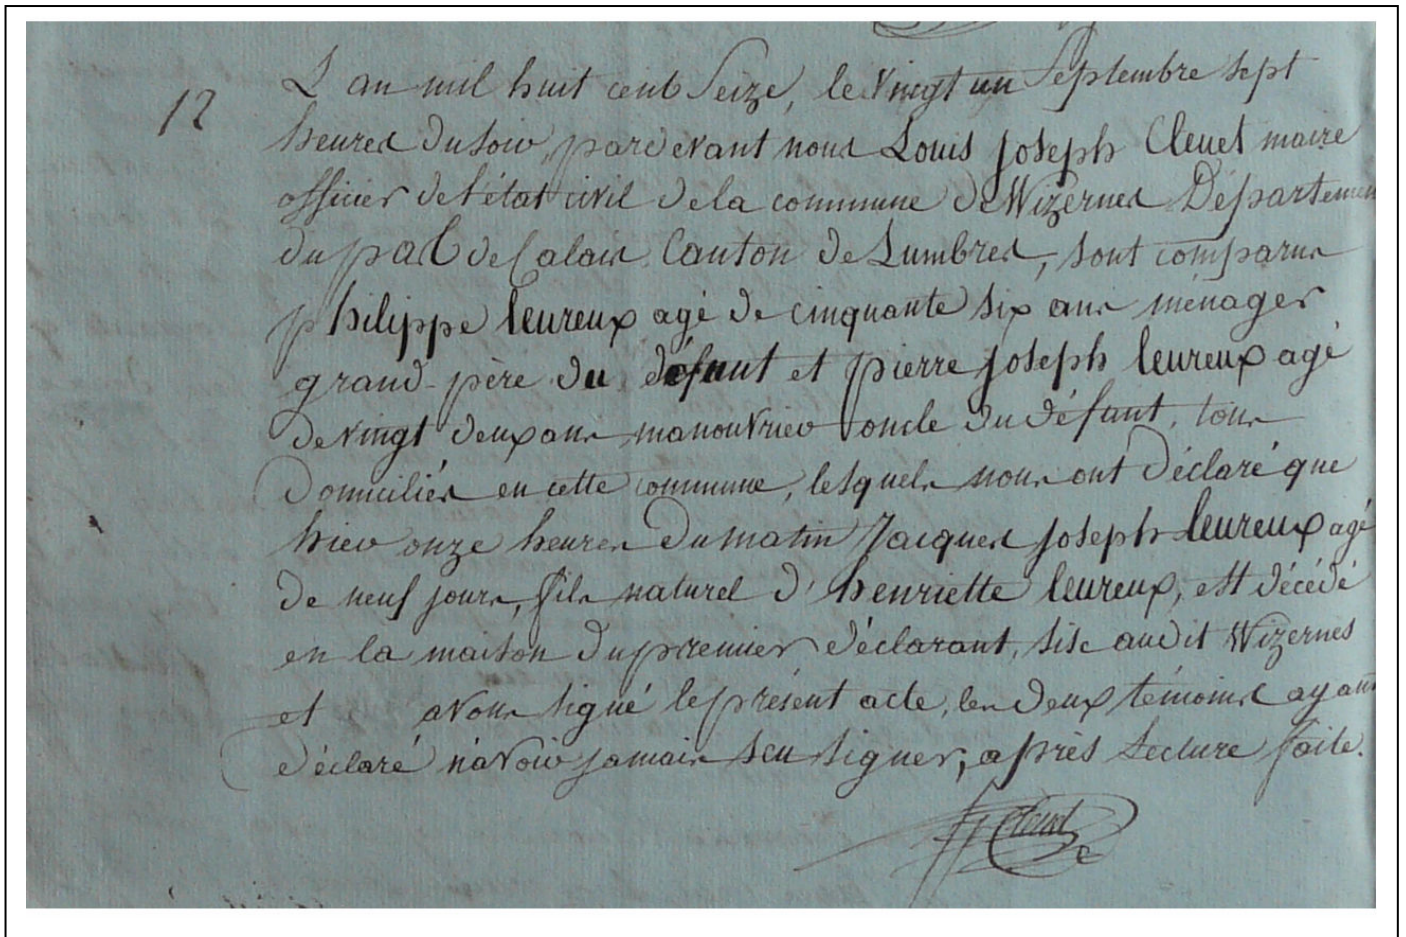 12
L'an mil huit cent Seize, le vingt un Septembre sept
heures du soir, pardevant nous Louis Joseph Cleuet maire
officier de l'état civil de la commune de Wizernes Départemen
du pas de Calais Canton de Lumbres, sont comparus
philippe leureux agé de cinquante six ans ménager
grand-père du défunt et pierre joseph leureux agé
de vingt deux ans manouvrier oncle du défunt, tous
Domiciliés en cette commune, lesquels nous ont déclaré que
hier onze heures du matin Jacques joseph leureux agé
de neuf jours, fils naturel d'henriette leureux, est décédé
en la maison du premier déclarant, sise audit Wizernes
et avons signé le présent acte, les deux témoins ayant
déclaré n'avoir jamais seu signer, après lecture faite.
Cleuet